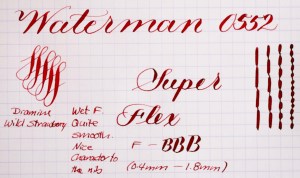 Waterman 0552
Super
Flex
F - BBB
(0.4mm - 1.8mm)
Diamine
Wild Strawberry
Wet F.
Quite
smooth.
Nice
character to
the nib